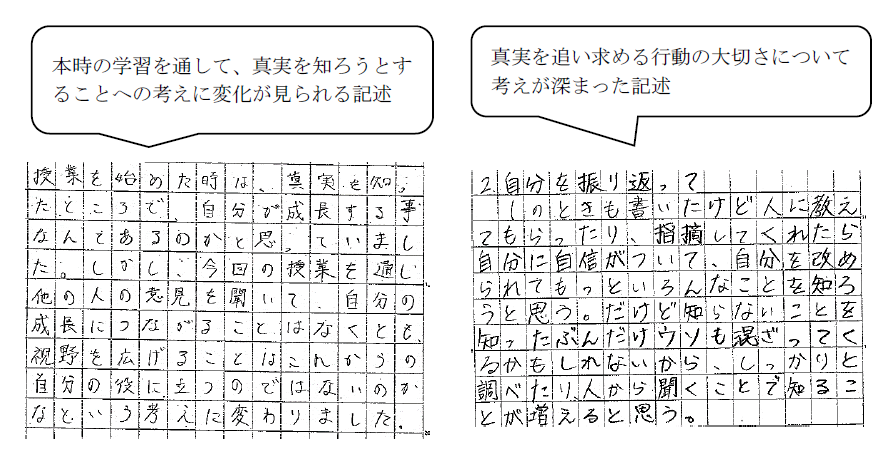 本時の学習を通して、真実を知ろうとす
ることへの考えに変化が見られる記述
授業を始めた時は、真実を知っ
たところで、自分が成長する事
なんてあるのかと思っていまし
た。しかし、今回の授業を通し
他の人の意見を聞いて、自分の
成長につながることはなくとも、
視野を広げることはこれからの
自分の役に立つのではないのか
なという考えに変わりました。
真実を追い求める行動の大切さについて
考えが深まった記述
2.自分を振り返って
1のときも書いたけど人に教え
てもらったり、指摘してくれたら
自分に自信がついて、自分を改め
られてもっといろんなことを知ろ
うと思う。だけど知らないことを
知ったぶんだけウソも混ざってく
るかもしれないから、しっかりと
調べたり、人から聞くことで知るこ
とが増えると思う。